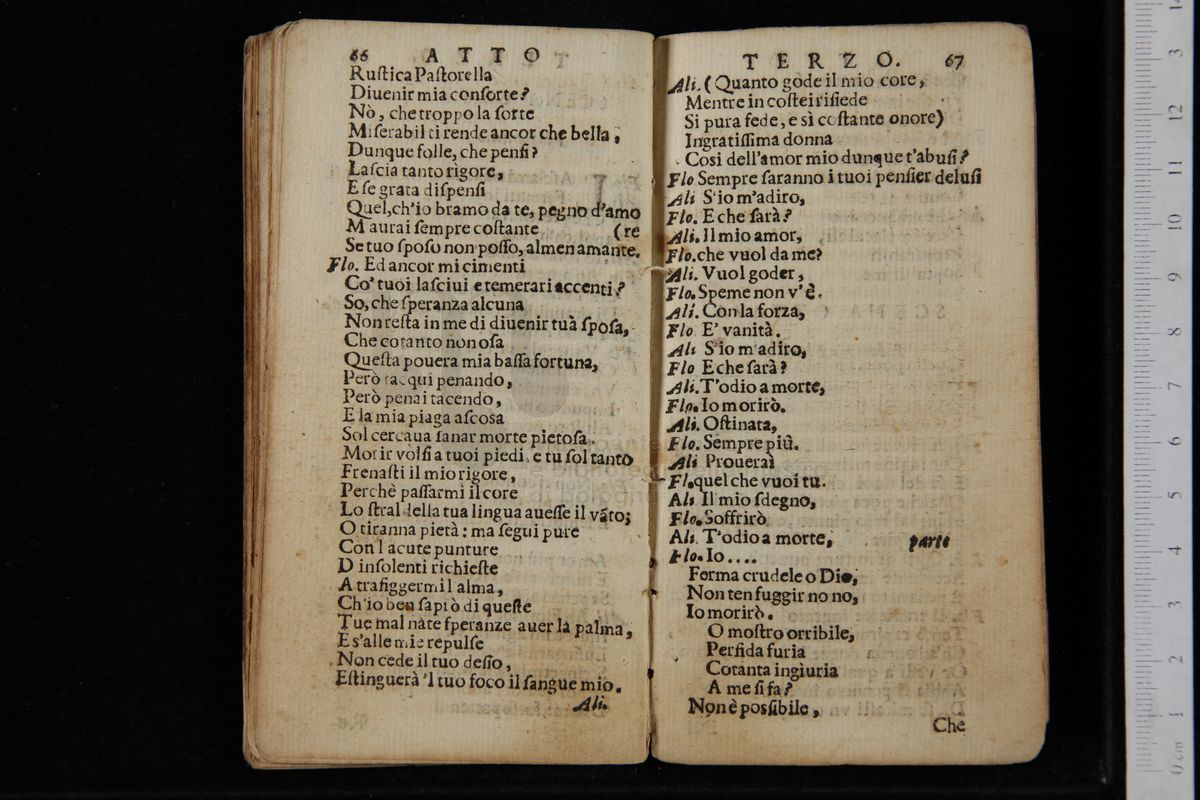 66 ATTO
Ruſtica Paſtorella
Diuenir mia conſorte?
Nò, che troppo la ſorte
Miſerabil ti rende ancor che bella,
Dunque folle, che penſi?
Laſcia tanto rigore,
E ſe grata diſpenſi
Quel, ch'io bramo da te, pegno d'amo
M'aurai ſempre coſtante (re
Se tuo ſpoſo non poſſo, almen amante.
Flo. Ed ancor mi cimenti
Co' tuoi laſciui e temerari accenti?
So, che ſperanza alcuna
Non reſta in me di diuenir tuà ſpoſa,
Che cotanto non oſa
Queſta pouera mia baſſa fortuna,
Però qui penando,
Però penai tacendo,
E la mia piaga aſcosa
Sol cercaua ſanar morte pietoſa.
Morir volſi a tuoi piedi, e tu ſol tanto
Frenaſti il mio rigore,
Perchè paſſarmi il core
Lo ſtral della tua lingua aueſſe il vãto;
O tiranna pietà: ma ſegui pure
Con l acute punture
D inſolenti richieſte
A trafiggermi l alma,
Ch'io ben ſaprò di queſte
Tue mal nàte ſperanze auer là palma,
E s'alle mie repulſe
Non cede il tuo deſio,
Eſtinguerà 'l tuo foco il ſangue mio.
Ali.
TERZO. 67
Ali. (Quanto gode il mio core,
Mentre in coſtei riſiede
Si pura fede, e sì coſtante onore)
Ingratiſſima donna
Cosi dell'amor mio dunque t'abuſi?
Flo Sempre ſaranno i tuoi penſier deluſi
Ali S'io m'adiro,
Flo. E che ſarà?
Ali. Il mio amor,
Flo. che vuol da me?
Ali. Vuol goder,
Flo. Speme non v'è.
Ali. Con la forza,
Flo E' vanità.
Ali S'io m'adiro,
Flo E che ſarà?
Ali. T'odio a morte,
Flo. Io morirò.
Ali. Oſtinata,
Flo. Sempre più.
Ali Prouerai
Fl. quel che vuoi tu.
Ali Il mio ſdegno,
Flo. Soffrirò
Ali. T'odio a morte, parte
Flo. Io....
Ferma crudele o Dio,
Non ten fuggir no no,
Io morirò.
O moſtro orribile,
Perfida furia
Cotanta ingiuria
A me ſi fa?
Non è posſibile,
Che